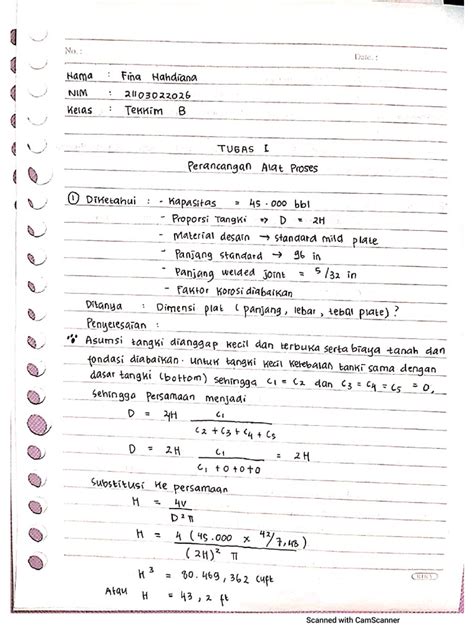 No. :
Date. :
Nama : Fina Mahdiana
NIM : 21103022026
Kelas : Tekkim B
TUGAS I
Perancangan Alat Proses
① Diketahui : - Kapasitas = 45.000 bbl
- Proporsi Tangki => D = 2H
- Material desain → standard mild plate
- Panjang standard → 96 in
- Panjang welded joint = 5/32 in
- Faktor korosi diabaikan
Ditanya : Dimensi plat (panjang, lebar, tebal plate)?
Penyelesaian :
Asumsi tangki dianggap kecil dan terbuka serta biaya tanah dan
fondasi diabaikan. untuk tangki kecil ketebalan tanki sama dengan
dasar tangki (bottom) sehingga c1 = c2 dan c3 = c4 = c5 = 0,
sehingga Persamaan menjadi
D = 2H c1 / c2 + c3 + c4 + c5
D = 2H c1 / c1 + 0 + 0 + 0 = 2H
Substitusi ke persamaan
H = 4V / D² π
H = 4 (45.000 x 42/7,48) / (2H)² π
H³ = 80.469,362 cuft
Atau H = 43,2 ft
Scanned with CamScanner